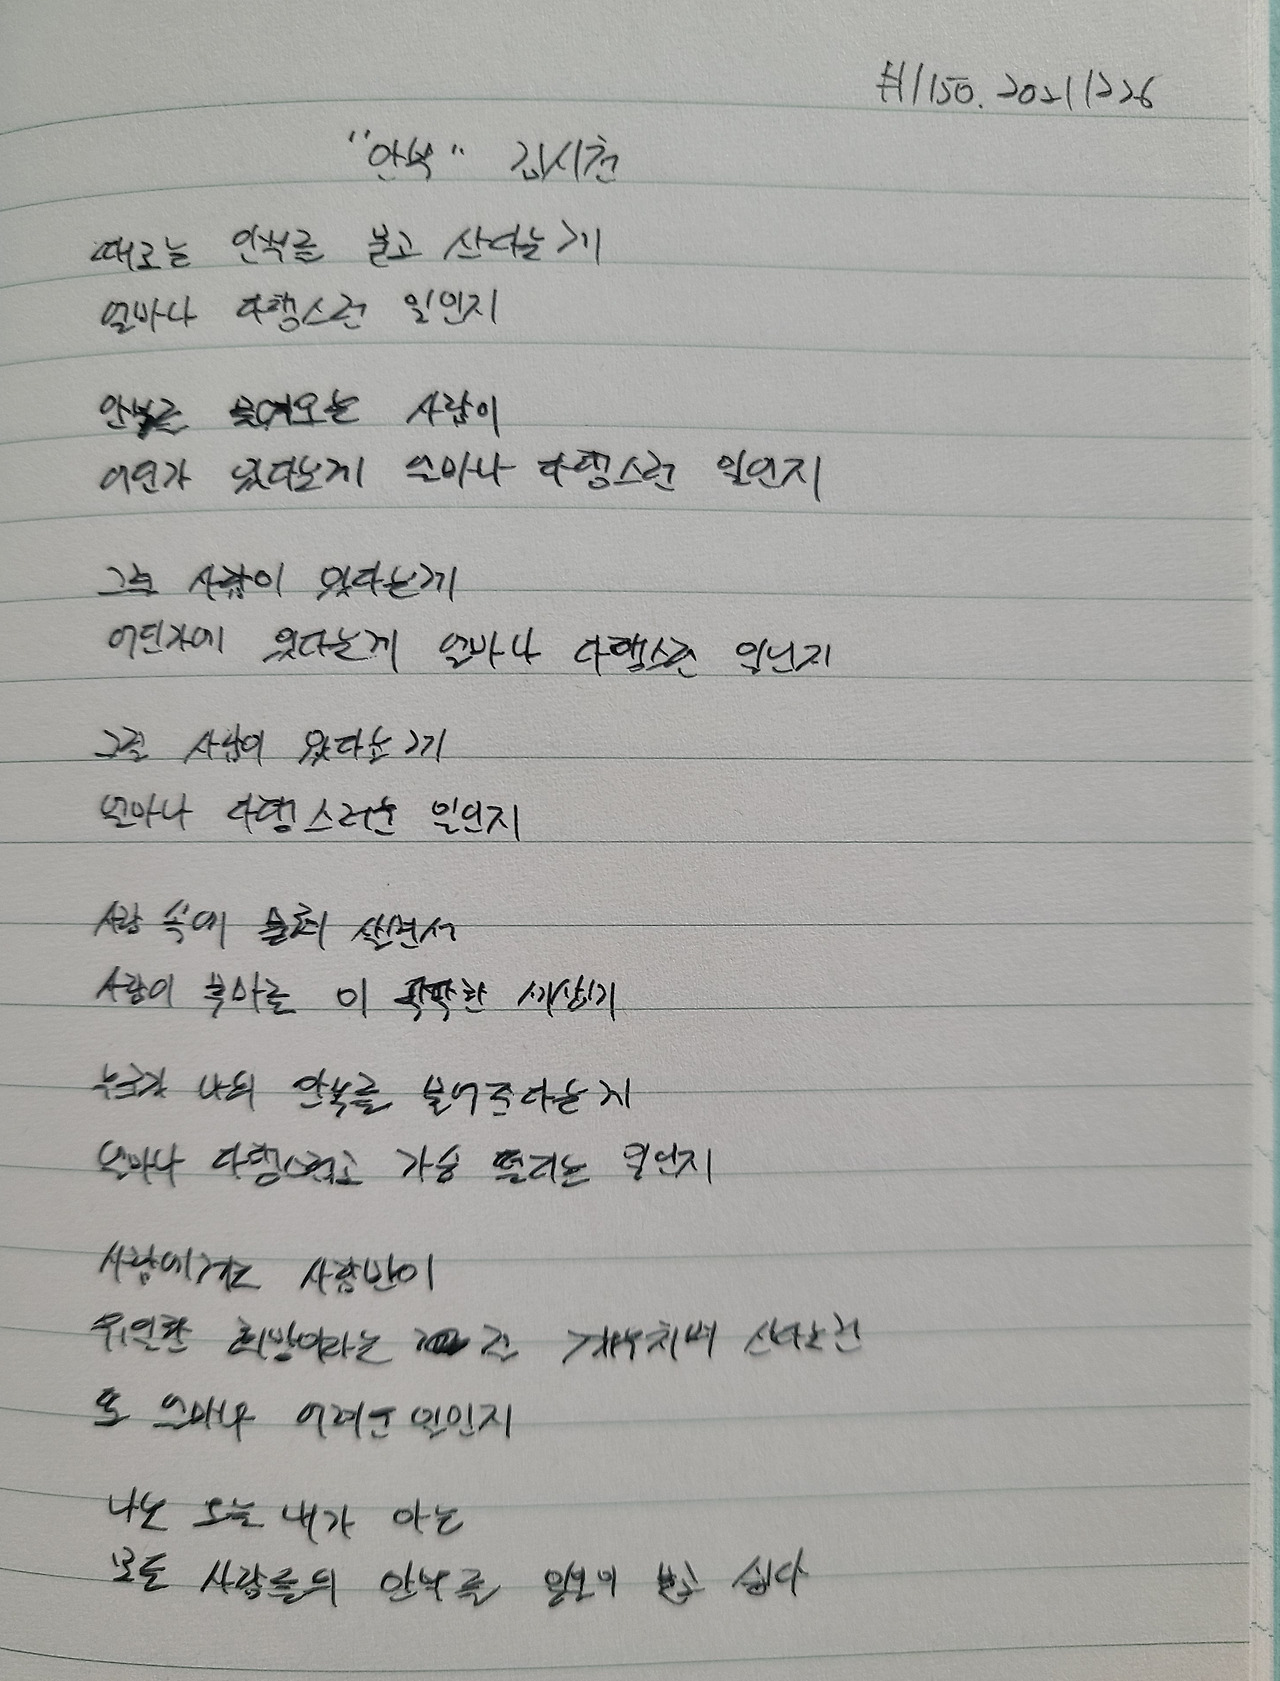 #1150. 20211226
"안부" 김시천
때로는 안부를 묻고 산다는게
얼마나 다행스런 일인지
안부를 물어오는 사람이
어딘가 있다는게 얼마나 다행스런 일인지
그런 사람이 있다는게
어딘가에 있다는게 얼마나 다행스런 일인지
그런 사람이 있다는게
얼마나 다행스러운 일인지
사람 속에 살면서
사람이 이 팍팍한 세상에
누군가 나의 안부를 물어준다는게
얼마나 다행스럽고 가슴 떨리는 일인지
사람에게는 사람만이
유일한 희망이라는 걸 깨우치며 산다는건
또 얼마나 어려운 일인지
나는 오늘 내가 아는
모든 사람들의 안부를 일일이 묻고 싶다